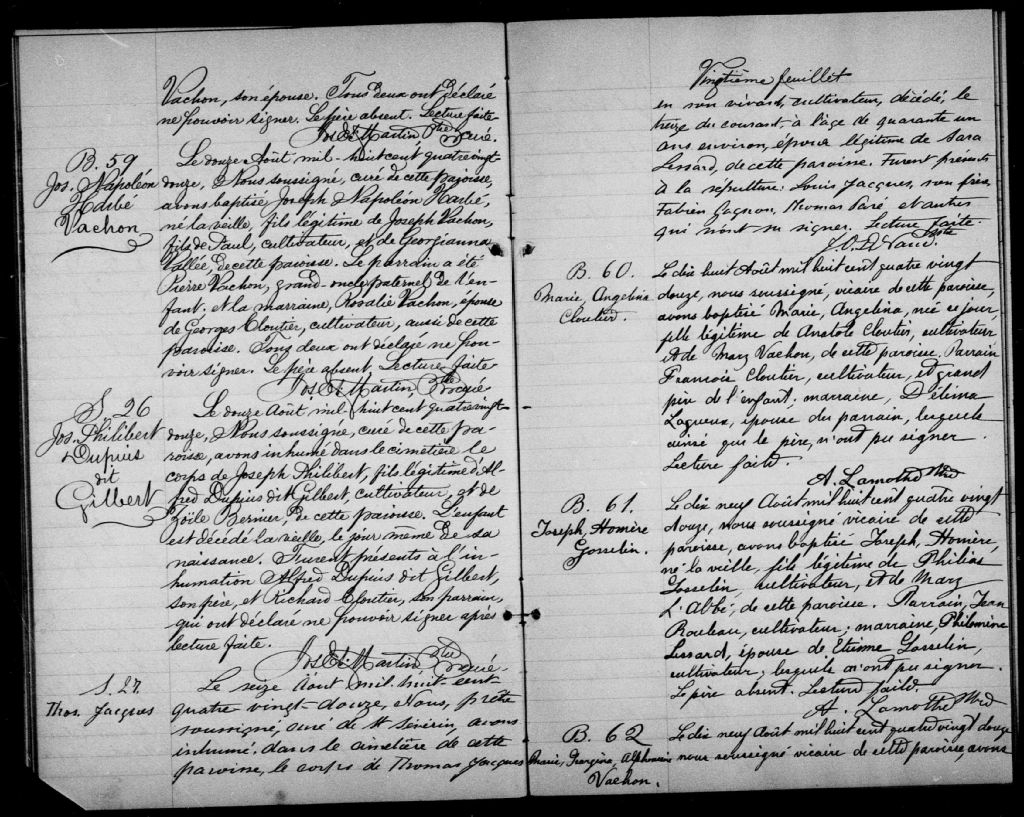 Vachon, son épouse. Tous deux ont déclaré
ne pouvoir signer. Le père absent. Lecture faite
Jos. Et. Martin, Ptre Curé.
B. 59
Jos. Napoléon
Harbé
Vachon
Le douze Août mil-huit cent quatrevingt-
douze, Nous soussigné, curé de cette paroisse,
avons baptisé Joseph Napoléon Harbé,
né la veille, fils légitime de Joseph Vachon,
fils de Paul, cultivateur, et de Georgianna
Vallée, de cette paroisse. Le parrain a été
Pierre Vachon, grand-oncle paternel de l'en-
fant. et la marraine, Rosalie Vachon, épouse
de Georges Cloutier, cultivateur, aussi de cette
paroisse. Tous deux ont déclaré ne pou-
voir signer. Le père absent. Lecture faite
Jos. Et. Martin, Ptre curé
S. 26
Jos. Philibert
Dupuis
dit
Gilbert
Le douze Août mil-huit cent quatrevingt-
douze, Nous soussigné, curé de cette pa-
roisse, avons inhumé dans le cimetière le
corps de Joseph Philibert, fils légitime d'Al-
fred Dupuis dit Gilbert, cultivateur, et de
Zoïle Bernier, de cette paroisse. L'enfant
est décédé la veille, le jour même de sa
naissance. Furent présents à l'in-
humation Alfred Dupuis dit Gilbert,
son père, et Richard Cloutier, son parrain,
qui ont déclaré ne pouvoir signer après
lecture faite.
Jos. Et. Martin Ptre curé.
S. 27
Thos. Jacques
Le seize Août mil-huit-cent-
quatre vingt-douze, Nous, prêtre
soussigné, curé de St Séverin, avons
inhumé, dans le cimetière de cette
paroisse, le corps de Thomas Jacques
Vingtième feuillet
en son vivant, cultivateur, décédé, le
treize du courant, à l'âge de quarante un
ans environ, époux légitime de Sara
Lessard, de cette paroisse. Furent présents
à la sépulture: Louis Jacques, son frère,
Fabien Gagnon, Thomas Paré et autres
qui n'ont su signer. Lecture faite.
Ptre
B. 60.
Marie, Angelina
Cloutier.
Le dix huit Août mil huit cent quatre vingt
douze, nous soussigné, vicaire de cette paroisse,
avons baptisé Marie, Angelina, née ce jour,
fille légitime de Anatole Cloutier, cultivateur
et de Mary Vachon, de cette paroisse. Parrain
Francois Cloutier, cultivateur, et grand
père de l'enfant; marraine, Délima
Lagueux, épouse du parrain, lesquels
ainsi que le père, n'ont pu signer.
Lecture faite.
A. Lamothe Ptre
B. 61.
Joseph, Homère
Gosselin.
Le dix neuf Août mil huit cent quatre vingt
douze, nous soussigné vicaire de cette
paroisse, avons baptisé Joseph, Homère,
né la veille, fils légitime de Philias
Gosselin, cultivateur, et de Mary
L'Abbé, de cette paroisse. Parrain, Jean
Rouleau, cultivateur; marraine, Philomène
Lessard, épouse de Etienne Gosselin,
cultivateur; lesquels n'ont pu signer.
Le père absent. Lecture faite.
A. Lamothe Ptre
B. 62
Marie, Georgina, Alphonsine
Vachon.
Le dix neuf Août mil huit cent quatre vingt douze
nous soussigné vicaire de cette paroisse, avons